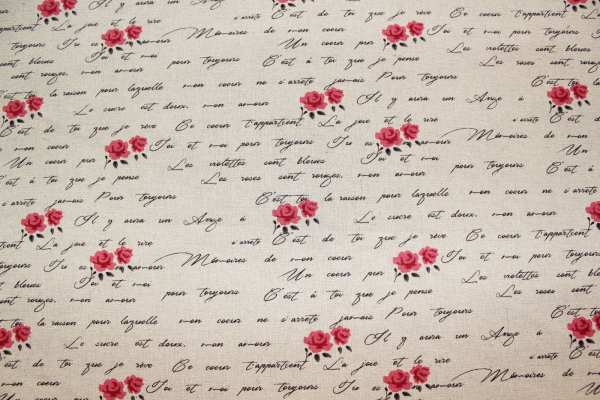 La joie et le rire s'arrête C'est de toi que je rêve Ce coeur t'appartient
toujours Tu es mon amour Mémoires de mon coeur Toi et moi pour toujours Tu es
sont bleues Toi et moi Un coeur pur Les violettes sont bleues
sont rouges, mon amour pour toujours C'est à toi que je pense Les roses sont
C'est toi la raison pour laquelle mon coeur ne s'arrête jamais Pour toujours
Le sucre est doux, mon amour Il y aura un Ange à
C'est de toi que je rêve Ce coeur t'appartient La joie et le rire
mon coeur Toi et moi pour toujours Tu es mon amour Mémoires de mon
Un coeur pur Les violettes sont bleues Toi et moi
C'est à toi que je pense Les roses sont rouges, mon amour pour toujours
jamais Pour toujours C'est toi la raison pour laquelle mon coeur ne s'arrête
Il y aura un Ange à Le sucre est doux, mon amour
La joie et le rire s'arrête C'est de toi que je rêve Ce coeur t'appartient
toujours Tu es mon amour Mémoires de mon coeur Toi et moi pour toujours
bleues Toi et moi Un coeur pur Les violettes sont bleues
sont rouges, mon amour pour toujours C'est à toi que je pense Les roses sont
toi la raison pour laquelle mon coeur ne s'arrête jamais Pour toujours
Le sucre est doux, mon amour Il y aura un Ange à
est de toi que je rêve Ce coeur t'appartient La joie et le rire
mon coeur Toi et moi pour toujours Tu es mon amour Mémoires de mon coeur